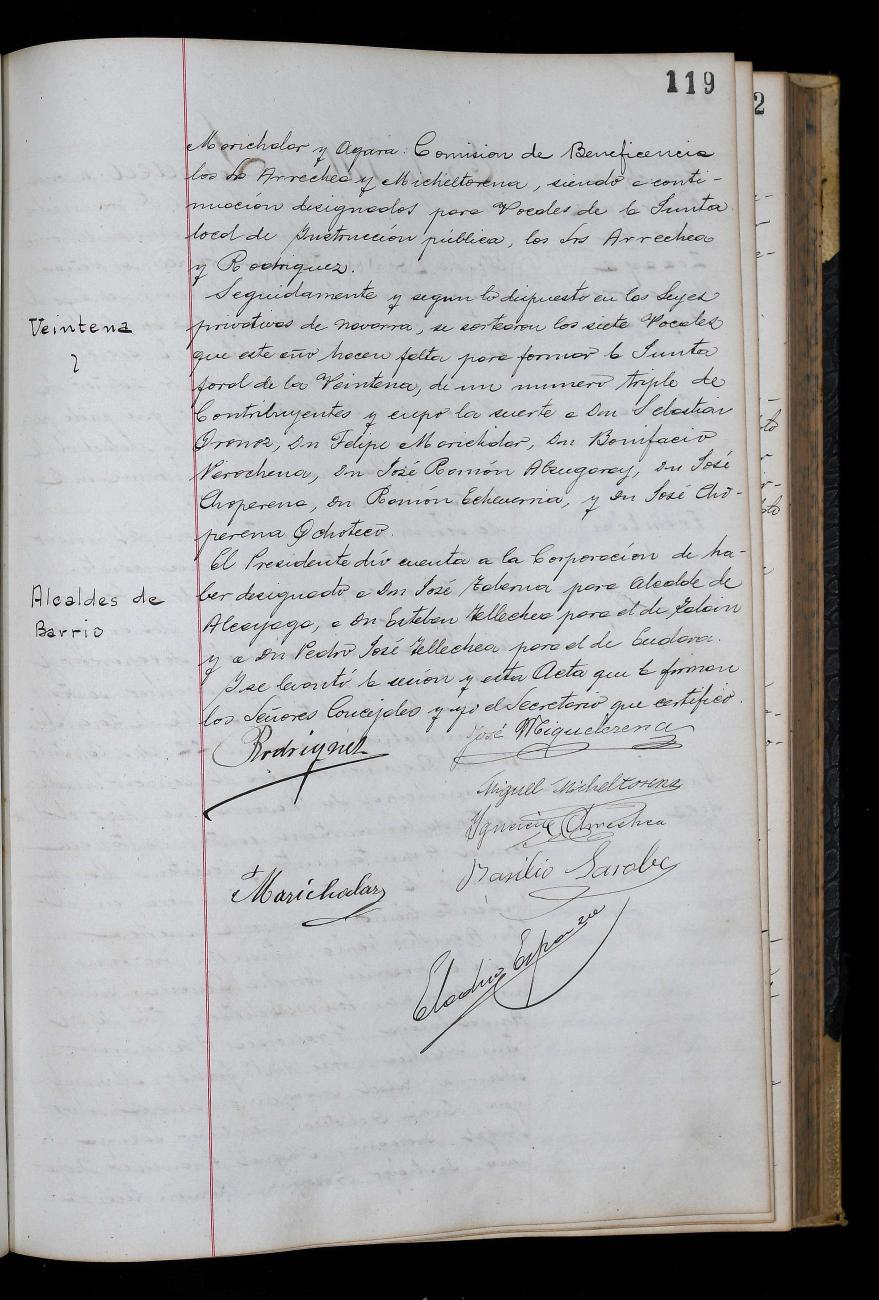 119
Marichalar y Agara. Comision de Beneficencia
los Srs Arrechea y Micheltorena, siendo a conti-
nuación designados para Vocales de la Junta
local de Instrucción pública, los Srs Arrechea
y Rodriguez.
Veintena
Seguidamente y segun lo dispuesto en las Leyes
privativas de Navarra, se sortearon los siete Vocales
que este año hacen falta para formar la Junta
foral de la Veintena, de un numero triple de
Contribuyentes y cupo la suerte a Dn Sebastian
Oronoz, Dn Felipe Marichalar, Dn Bonifacio
Perochena, Dn José Ramón Alzugaray, Dn José
Choperena, Dn Ramón Echeverria, y Dn José Cho-
perena Ochoteco.
Alcaldes de
Barrio
El Presidente dió cuenta a la Corporación de ha-
ber designado a Dn José Taberna para Alcalde de
Alcayaga, a Dn Esteban Tellechea para el de Zalain
y a Dn Pedro José Tellechea para el de Eudara.
Y se levantó la sesión y esta Acta que la firman
los Señores Concejales y yo el Secretario que certifico.
Rodriguez
José Miguelorena
Miguel Micheltorena
Ygnacio Arrechea
Marichalar
Basilio Sarobe
Eladio Esparza